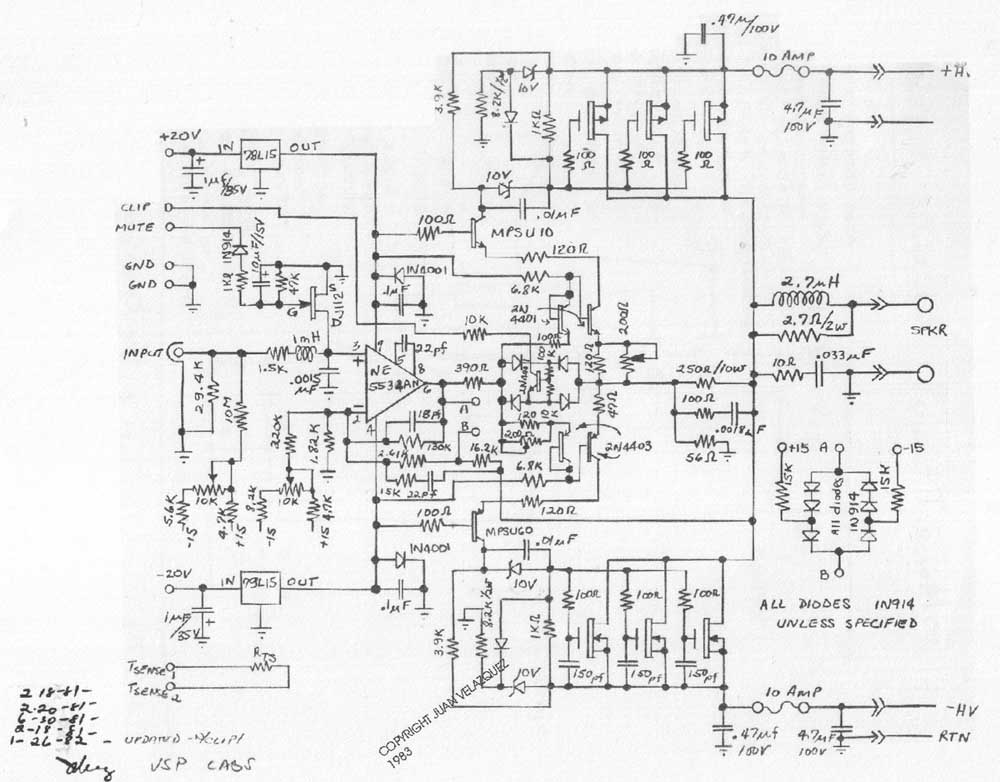 .47μ/100V
10 AMP
+H.
4.7μF
100V
3.9K
8.2K/2W
10V
1KΩ
100Ω
100Ω
100Ω
10V
.01μF
+20V
IN
78L15
OUT
1μF/35V
CLIP
MUTE
GND
GND
1N914
10μF/15V
1KΩ
47K
S
G
J112A
100Ω
MPSU10
1N4001
.1μF
120Ω
6.8K
2N
4401
200Ω
10K
2.7μH
2.7Ω/2W
SPKR
INPUT
1mH
1.5K
.0015
μF
3
+
5
22pf
8
NE
5534AN
6
2
4
390Ω
100Ω
120Ω
250Ω/10W
10Ω
.033μF
100Ω
.0018μF
56Ω
29.4K
10M
220K
1.82K
18pf
130K
2.61K
16.2K
15K
22pf
A
B
120
10K
200Ω
47Ω
2N4403
6.8K
120Ω
10K
10K
5.6K
-15
4.7K
+15
8.2K
-15
4.7K
+15
100Ω
MPSU60
.01μF
1N4001
.1μF
10V
+15
A
-15
15K
15K
All diodes
1N914
B
-20V
IN
79L15
OUT
1μF
/35V
3.9K
8.2K/2W
1KΩ
10V
100Ω
100Ω
100Ω
150pf
150pf
150pf
ALL DIODES 1N914
UNLESS SPECIFIED
TSENSE1
TSENSE2
RTS
10 AMP
-HV
RTN
.47μf
100V
4.7μF
100V
COPYRIGHT JUAN VELAZQUEZ
1983
2 18-81-
2-20-81-
6-30-81-
8-18-81-
1-26-82 - UPDATED -W/CLIP1
VSP LABS